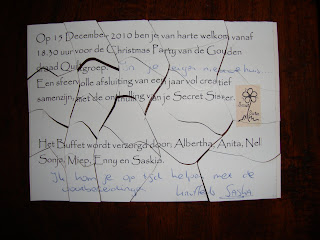 Op 15 December 2010 ben je van harte welkom vanaf
18.30 uur voor de Christmas Party van de Gouden
draad Quiltgroep in je eigen
Een sfeervolle afsluiting van een jaar vol creatief
samenzijn met de onthulling van je Secret Sister.
Het Buffet wordt verzorgd door: Albertha, Anita, Nel
Sonja, Miep, Enny en Saskia.
Ik kom je op tijd helpen met de
voorbereidingen Saskia